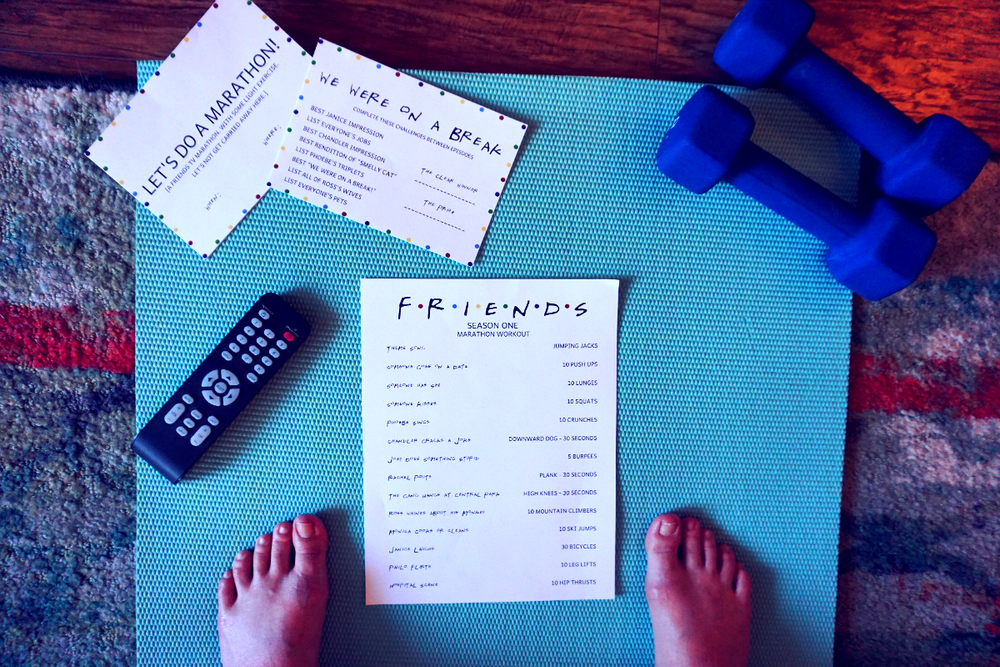 LET'S DO A MARATHON!
(A FRIENDS TV MARATHON. WITH SOME LIGHT EXERCISE.
LET'S NOT GET CARRIED AWAY HERE.)
WHEN:
WHERE:
WE WERE ON A BREAK
COMPLETE THESE CHALLENGES BETWEEN EPISODES
BEST JANICE IMPRESSION
LIST EVERYONE'S JOBS
BEST CHANDLER IMPRESSION
BEST RENDITION OF "SMELLY CAT"
LIST PHOEBE'S TRIPLETS
BEST "WE WERE ON A BREAK!"
LIST ALL OF ROSS'S WIVES
LIST EVERYONE'S PETS
THE CLEAR WINNER
THE PRIZE
F•R•I•E•N•D•S
SEASON ONE
MARATHON WORKOUT
THEME SONG JUMPING JACKS
SOMEONE GOES ON A DATE 10 PUSH UPS
SOMEONE HAS SEX 10 LUNGES
SOMEONE KISSES 10 SQUATS
PHOEBE SINGS 10 CRUNCHES
CHANDLER CRACKS A JOKE DOWNWARD DOG - 30 SECONDS
JOEY DOES SOMETHING STUPID 5 BURPEES
RACHEL POUTS PLANK - 30 SECONDS
THE GANG HANGS AT CENTRAL PERK HIGH KNEES - 30 SECONDS
ROSS WHINES ABOUT HIS MONKEY 10 MOUNTAIN CLIMBERS
MONICA COOKS OR CLEANS 10 SKI JUMPS
JANICE LAUGHS 30 BICYCLES
PAOLO FLIRTS 10 LEG LIFTS
HOSPITAL SCENE 10 HIP THRUSTS